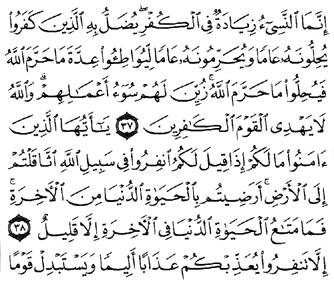 إِنَّمَا ٱلنَّسِىٓءُ زِيَادَةٌ فِى ٱلْكُفْرِ يُضَلُّ بِهِ ٱلَّذِينَ كَفَرُوا۟
يُحِلُّونَهُۥ عَامًا وَيُحَرِّمُونَهُۥ عَامًا لِّيُوَاطِـُٔوا۟ عِدَّةَ مَا حَرَّمَ ٱللَّهُ
فَيُحِلُّوا۟ مَا حَرَّمَ ٱللَّهُ زُيِّنَ لَهُمْ سُوٓءُ أَعْمَـٰلِهِمْ وَٱللَّهُ
لَا يَهْدِى ٱلْقَوْمَ ٱلْكَـٰفِرِينَ ٣٧ يَـٰٓأَيُّهَا ٱلَّذِينَ
ءَامَنُوا۟ مَا لَكُمْ إِذَا قِيلَ لَكُمُ ٱنفِرُوا۟ فِى سَبِيلِ ٱللَّهِ ٱثَّاقَلْتُمْ
إِلَى ٱلْأَرْضِ أَرَضِيتُم بِٱلْحَيَوٰةِ ٱلدُّنْيَا مِنَ ٱلْـَٔاخِرَةِ
فَمَا مَتَـٰعُ ٱلْحَيَوٰةِ ٱلدُّنْيَا فِى ٱلْـَٔاخِرَةِ إِلَّا قَلِيلٌ ٣٨
إِلَّا تَنفِرُوا۟ يُعَذِّبْكُمْ عَذَابًا أَلِيمًا وَيَسْتَبْدِلْ قَوْمًا